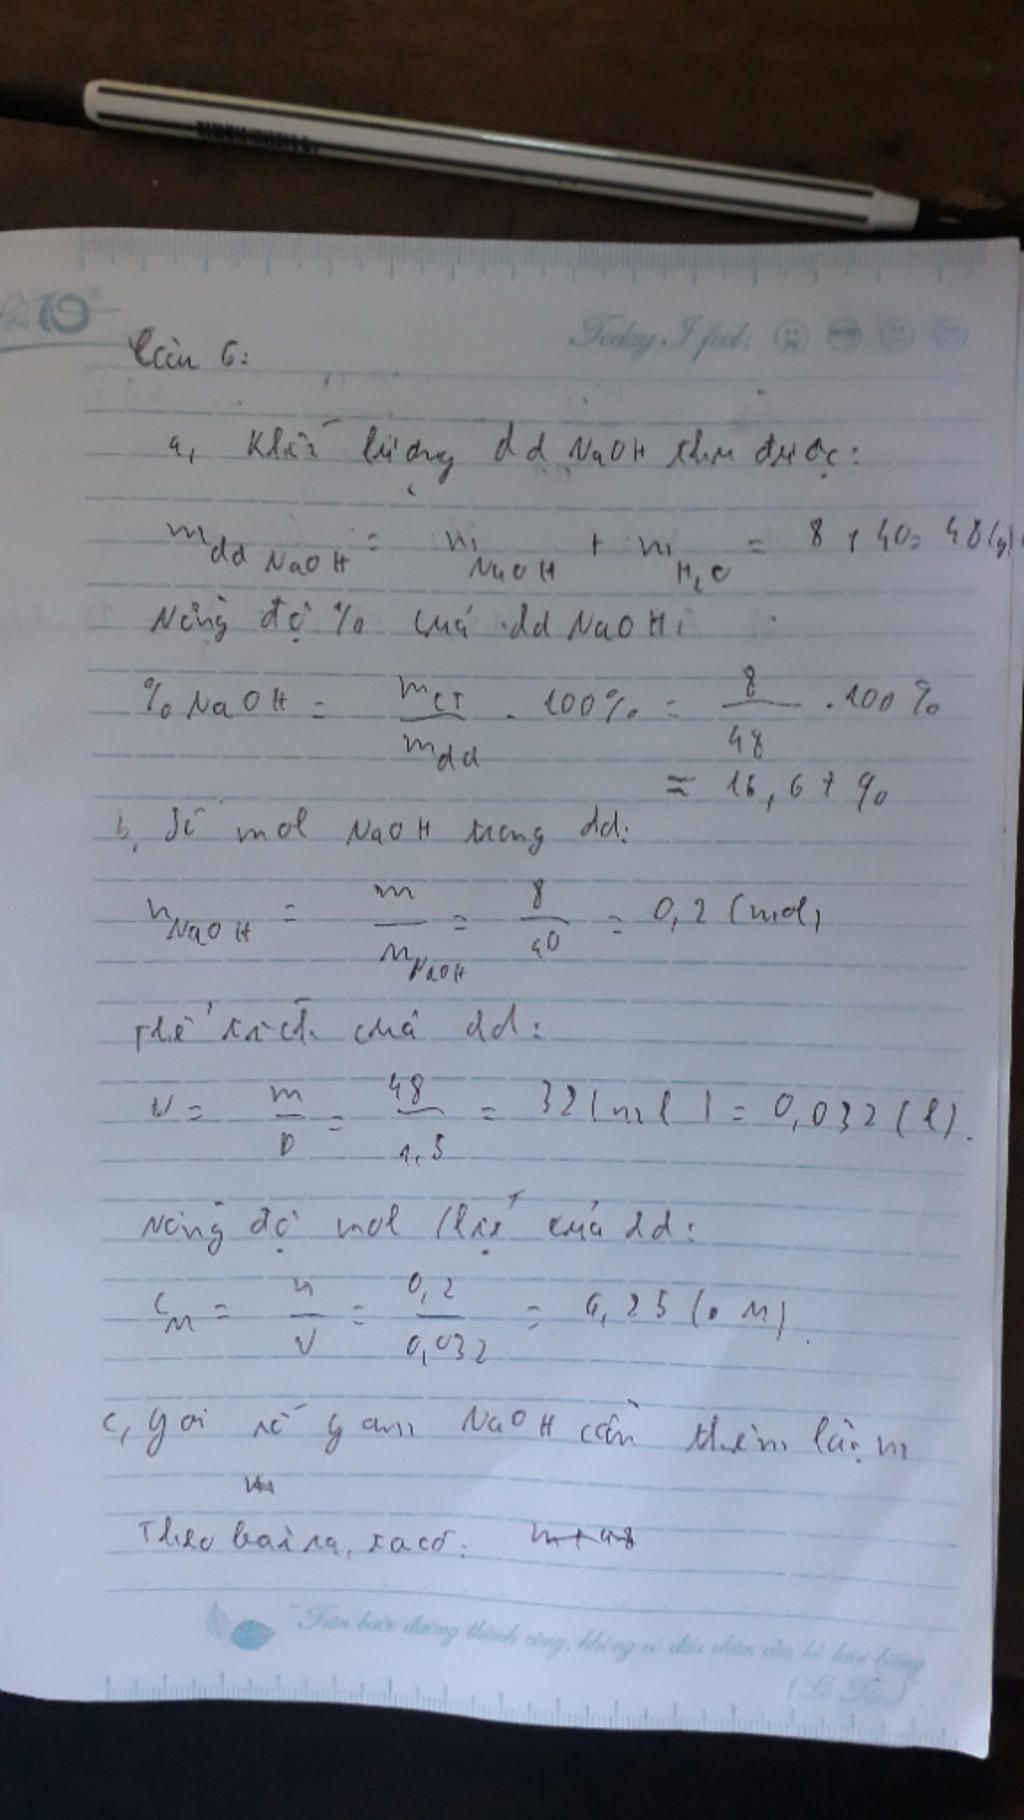 10
Today I feel:
Câu 6:
a, Khối lượng dd NaOH thu được:
m dd NaOH = m NaOH + m H2O = 8 + 40 = 48 (g)
Nồng độ % của dd NaOH:
% NaOH = mCT / mdd . 100% = 8 / 48 . 100%
≈ 16,67 %
b, Số mol NaOH trong dd:
n NaOH = m / M NaOH = 8 / 40 = 0,2 (mol)
Thể tích của dd:
V = m / D = 48 / 1,5 = 32 (ml) = 0,032 (l).
Nồng độ mol của dd:
CM = n / V = 0,2 / 0,032 = 6,25 ( M).
c, Gọi số gam NaOH cần thêm là m
Theo bài ra, ta có: m + 48
"Trên bước đường thành công, không có dấu chân của kẻ lười biếng"
(Lỗ Tấn)